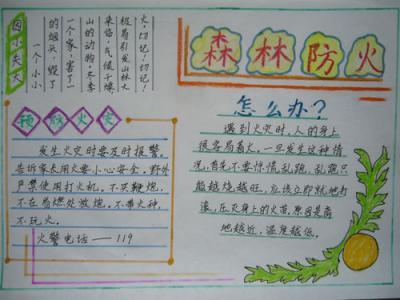 因小失大
一个小小
的烟头，毁了
一个家，害了一
山的动物。冬季
来临，气候干燥
极易引发山林大
火，切记！切记！
森林防火
预防火灾
发生火灾时要及时报警。
告诉家长用火要小心安全，野外
严禁使用打火机，不买鞭炮，
不在易燃处放炮，不带火种，
不玩火。
火警电话——119
怎么办？
遇到火灾时，人的身上
很容易着火，一旦发生这种情
况，首先不要惊慌乱跑，乱跑只
能越烧越旺，应该立即就地打
滚，压灭身上的火苗，原因是离
地越近，温度越低。